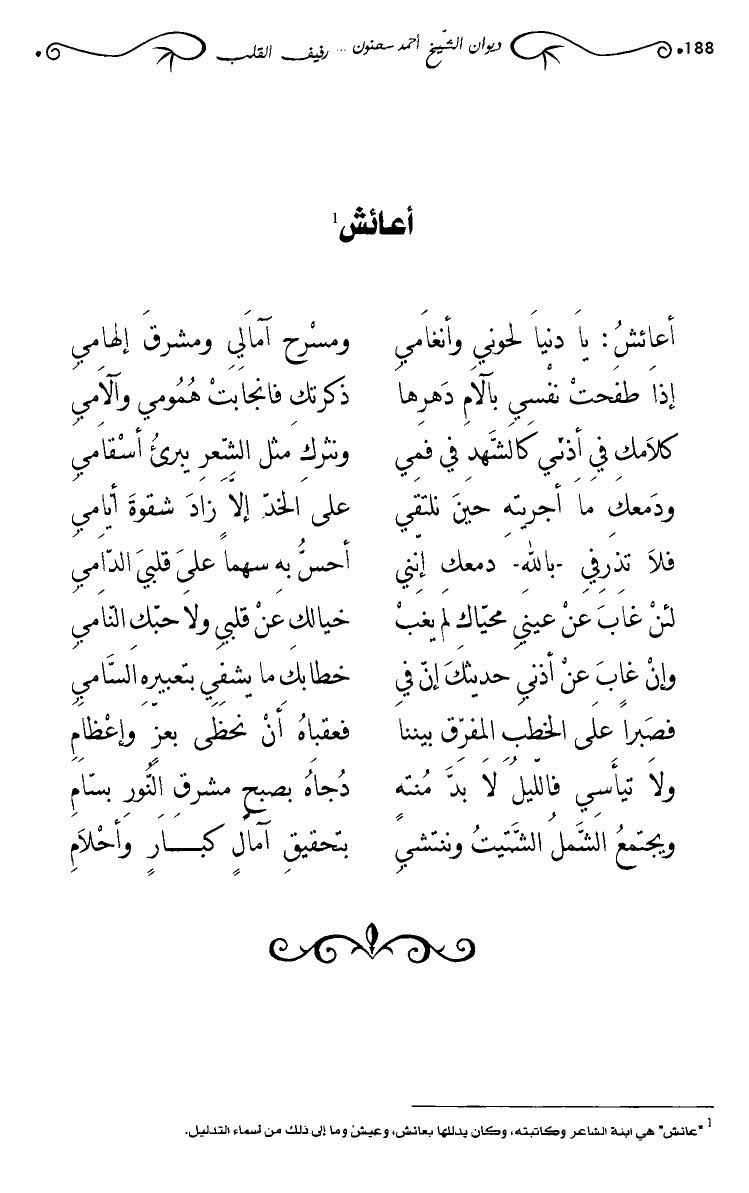 188 ديوان الشّيخ أحمد سحنون ... رفيف القلب
أعائش1
أعائشُ: ياَ دنياَ لحوني وأنغاَمي ومسْرح آمَالي ومشرقَ إلهامي
إذا طفحتْ نفْسي بآلَام دَهرِها ذكرتك فانجابتْ هُمُومي وآلَامي
كلَامك في أذنْي كالشَّهد في فمي ونثرك مثل الشّعرِ يبرئُ أسْقامي
ودَمعك ما أجريتِه حينَ نلتقي على الخدّ إلاَّ زادَ شقوةَ أيامي
فلاَ تذرفي -بالله- دمعك إنّني أحسُّ به سهماً علىَ قلبيَ الدّامي
لئنْ غابَ عنْ عيني محيّاك لم يغبْ خيالك عنْ قلبي ولا حبّك النّامي
وإنْ غابَ عنْ أذني حديثكَ إنّ في خطابك ما يشفي بتعبيره السَّامي
فصَبراً على الخطبِ المفرّق بيننا فعقباهُ أنْ نحظَى بعزٍّ وإعْظامِ
ولاَ تيأَسي فالّليلُ لَا بدَّ مُنتهٍ دُجاهُ بصبحٍ مشرقِ النُّورِ بسّامِ
ويجتمعُ الشَّملُ الشَّتيتُ وننتشي بتحقيقِ آمَالٍ كبـــارٍ وأحْلاَمِ
1 "عائش" هي ابنة الشاعر وكاتبته، وكان يدللها بعائش، وعيش وما إلى ذلك من أسماء التدليل.